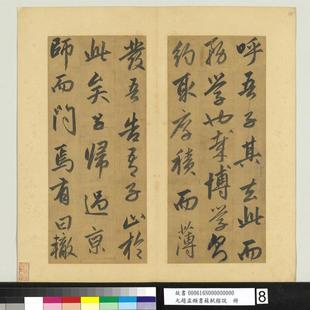 呼吾子其去此而
務學也哉博學而
約取厚積而薄
發吾告吾子止於
此矣子歸過京
師而問焉有曰轍
故書000616N000000000
元趙孟頫書蘇軾稼說 冊
8